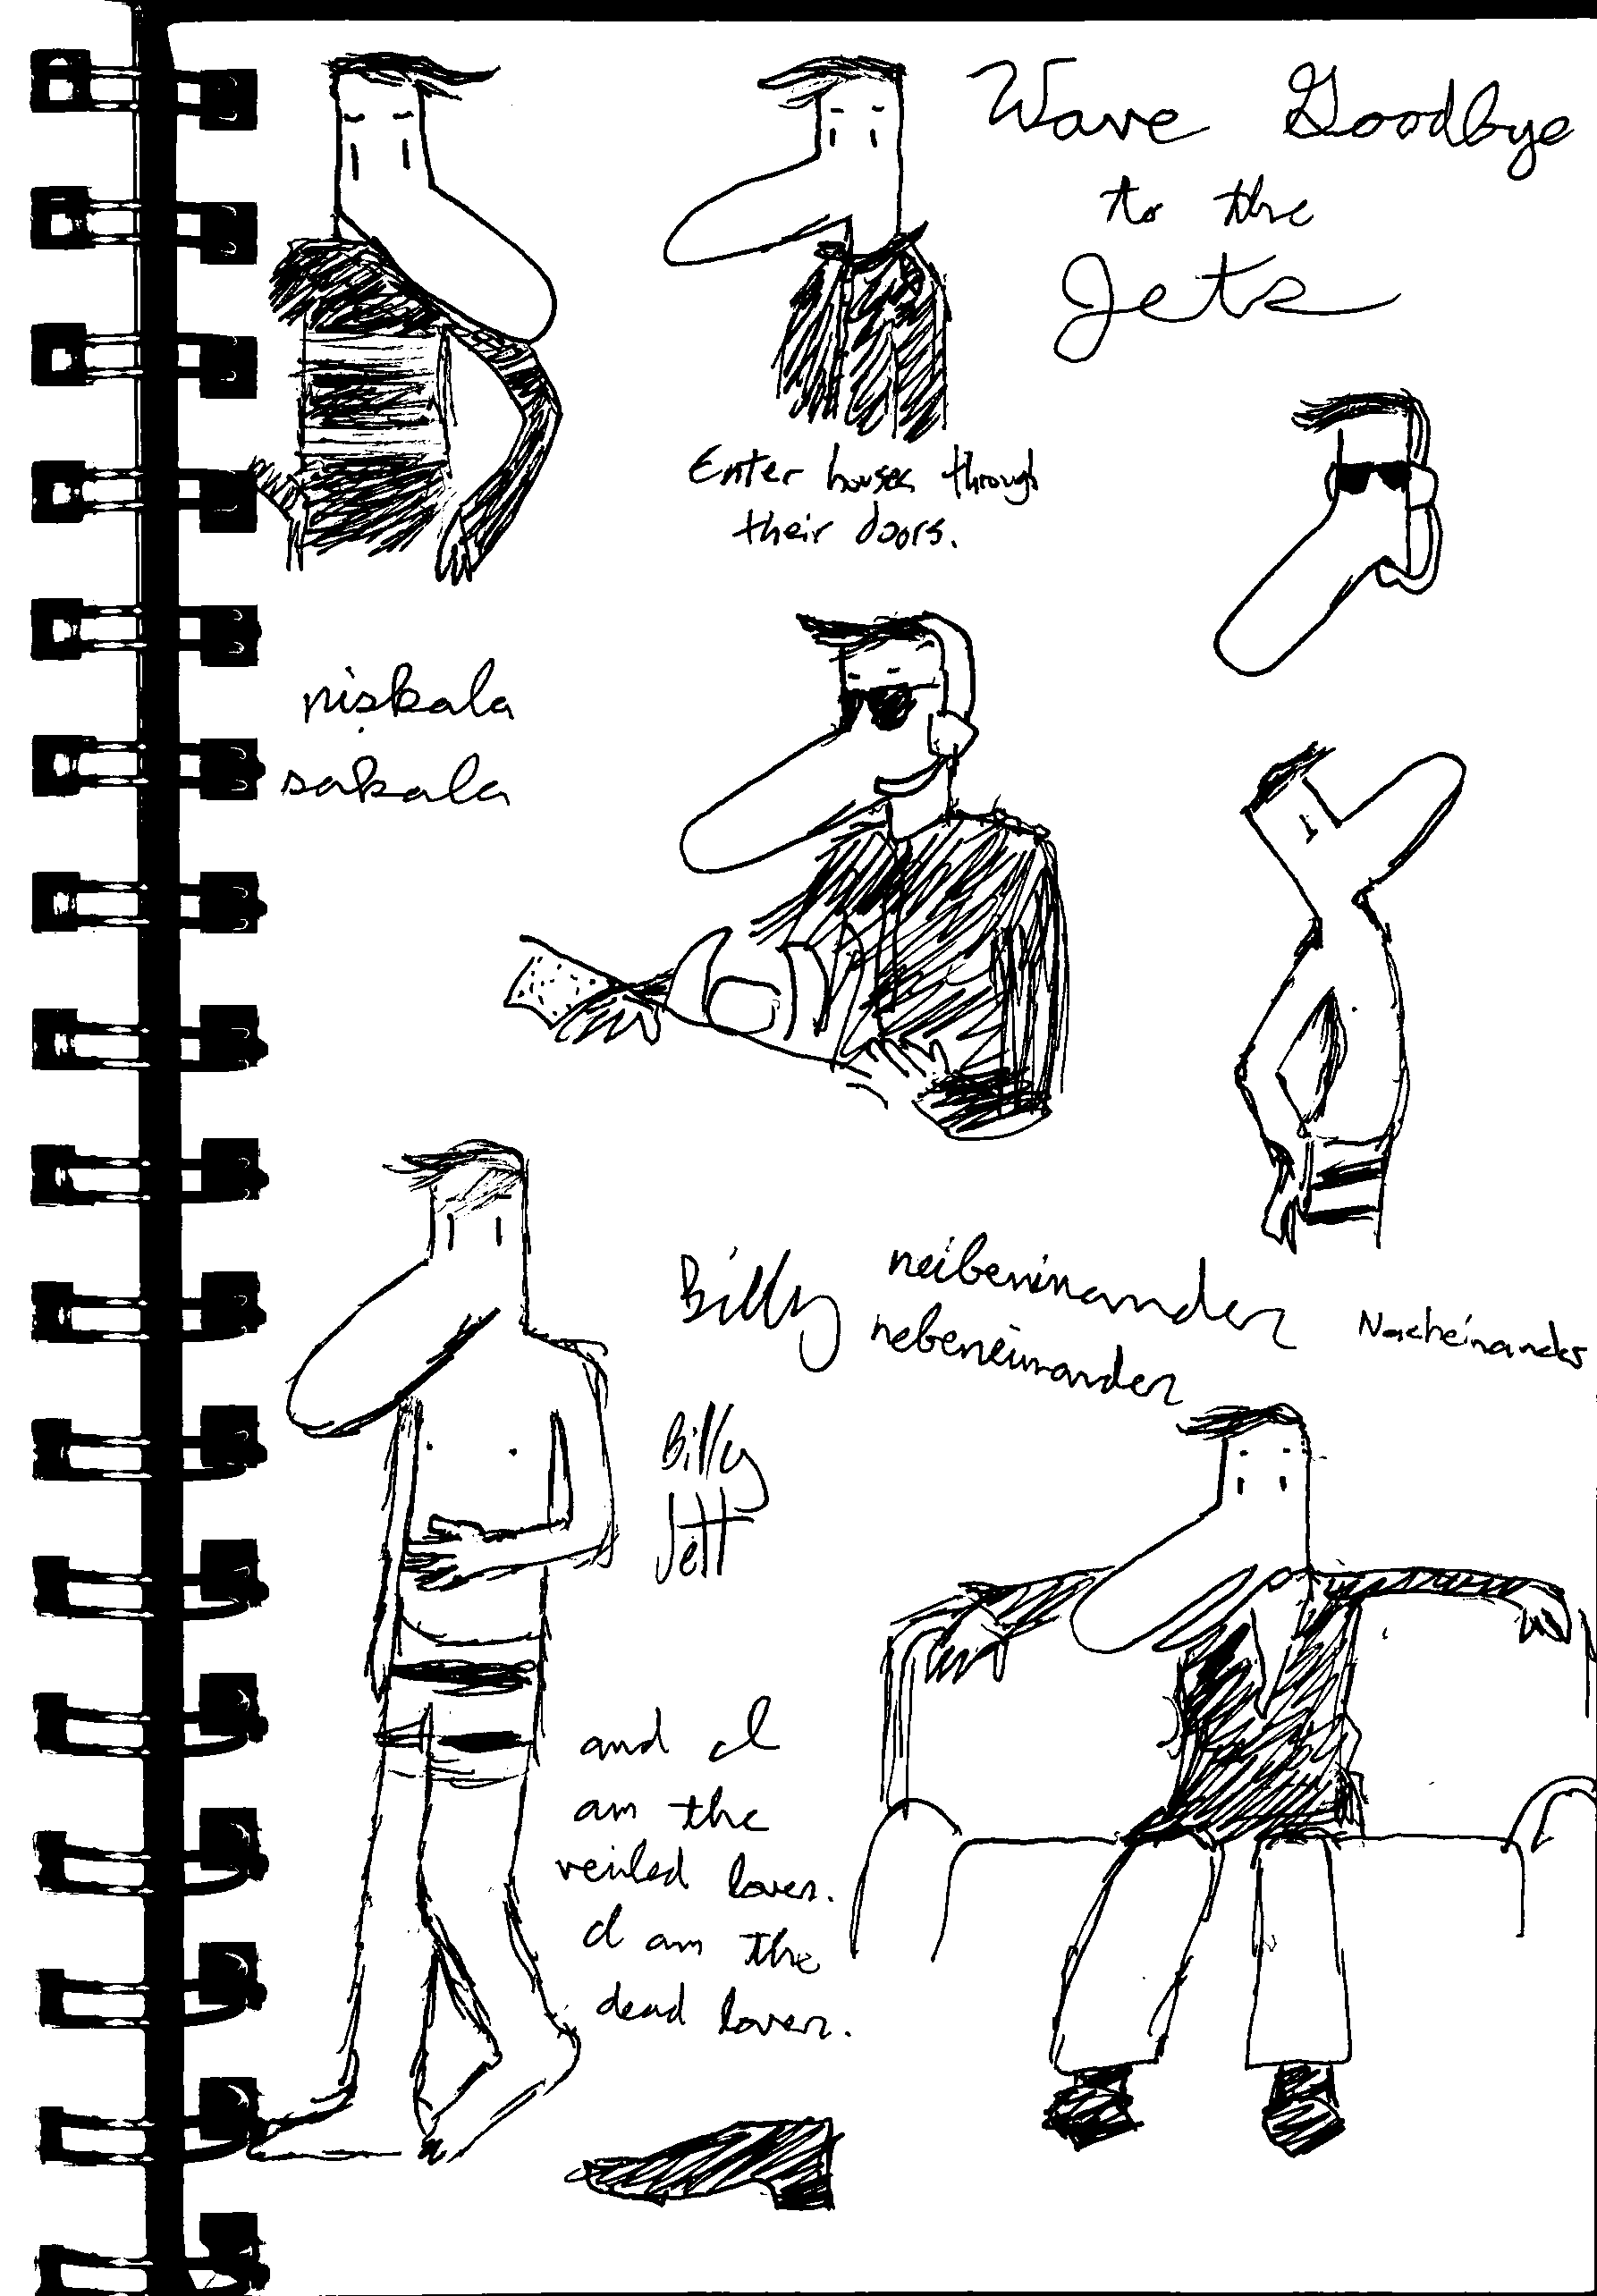 Wave Goodbye
to the
Jets
Enter houses through
their doors.
niṣkala
sakala
Billy
neibeninander
nebeneinander
Nacheinander
Billy
Jett
and I
am the
veiled lover.
I am the
dead lover.